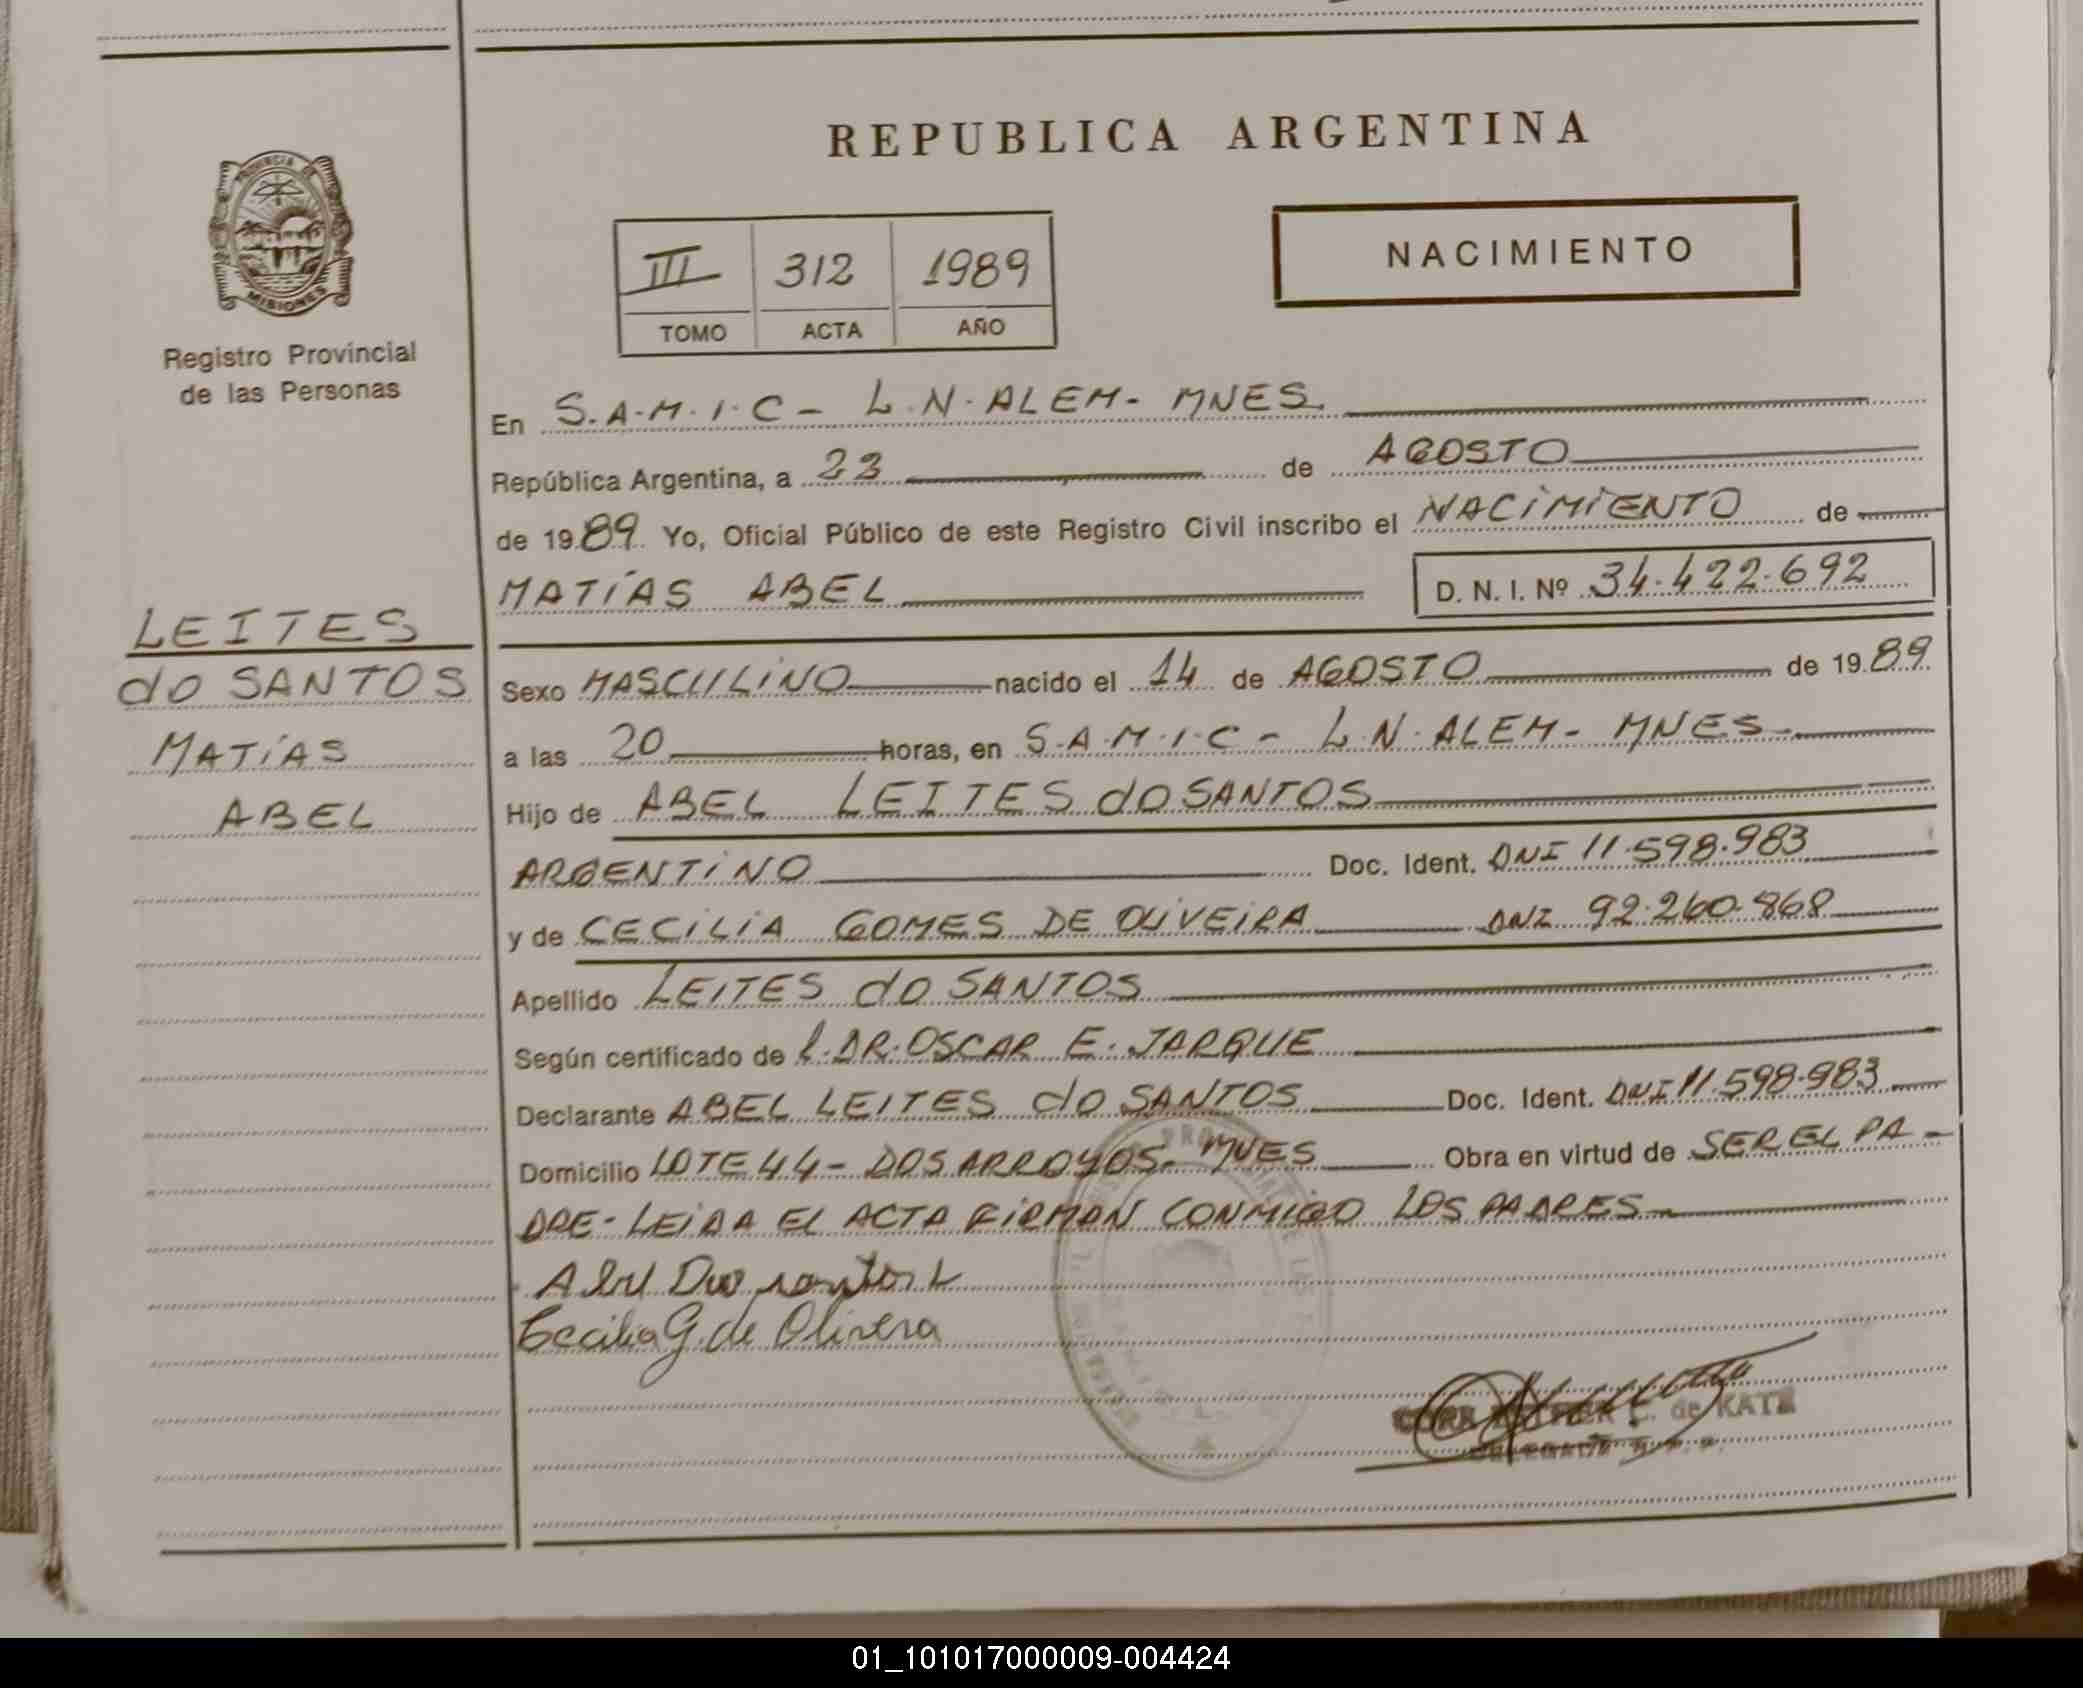 REPUBLICA ARGENTINA
PROVINCIA DE
MISIONES
Registro Provincial
de las Personas
III 312 1989
TOMO ACTA AÑO
NACIMIENTO
En S.A.M.I.C - L.N.ALEM - MNES.
República Argentina, a 23 de AGOSTO
de 1989 Yo, Oficial Público de este Registro Civil inscribo el NACIMIENTO de
MATÍAS ABEL D. N. I. Nº 34.422.692
LEITES
do SANTOS
MATÍAS
ABEL
Sexo MASCULINO nacido el 14 de AGOSTO de 1989
a las 20 horas, en S.A.M.I.C - L.N.ALEM - MNES
Hijo de ABEL LEITES do SANTOS
ARGENTINO Doc. Ident. DNI 11.598.983
y de CECILIA GOMES DE OLIVEIRA DNI 92.260.868
Apellido LEITES do SANTOS
Según certificado de l. DR. OSCAR E. JARQUE
Declarante ABEL LEITES do SANTOS Doc. Ident. DNI 11.598.983
Domicilio LOTE 44 - DOS ARROYOS - MNES Obra en virtud de SER EL PA-
DRE - LEIDA EL ACTA FIRMAN CONMIGO LOS PADRES
Cecilia G. de Olivera
de KATZ
01_101017000009-004424